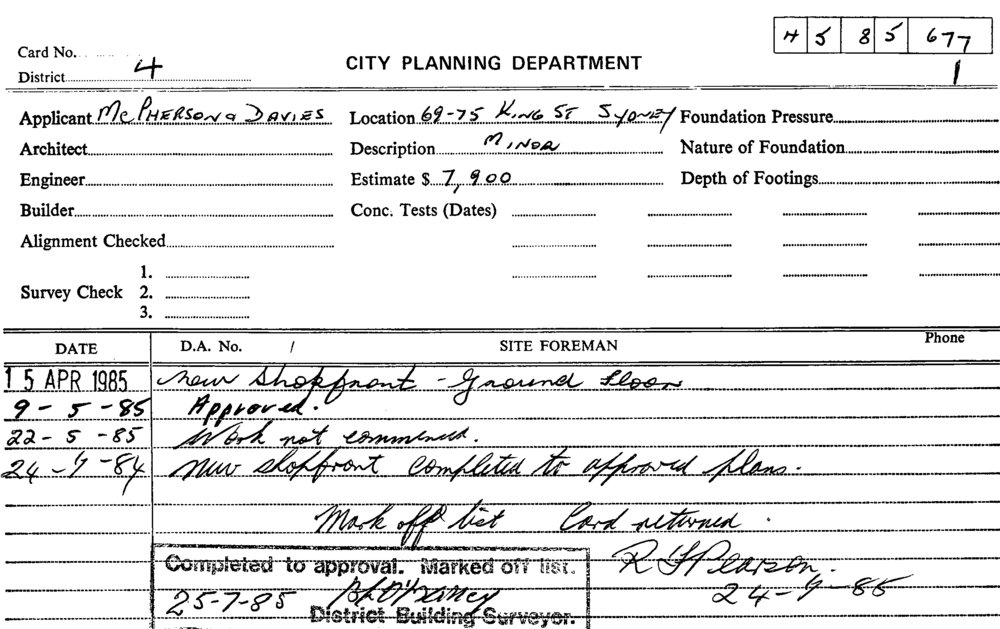 45 85 677
Card No.
District 4 CITY PLANNING DEPARTMENT 1
Applicant McPHERSON & DAVIES Location 69-75 KING ST SYDNEY Foundation Pressure
Architect Description MINOR Nature of Foundation
Engineer Estimate $ 7,900 Depth of Footings
Builder Conc. Tests (Dates)
Alignment Checked
1.
Survey Check 2.
3.
DATE D.A. No. / SITE FOREMAN Phone
15 APR 1985 New Shopfront - Ground Floor
9-5-85 Approved.
22-5-85 Work not commenced.
24-7-84 New shopfront completed to approved plans.
Mark off list Card returned.
Completed to approval. Marked off list. R Pearson.
25-7-85 24-7-85
District Building Surveyor.